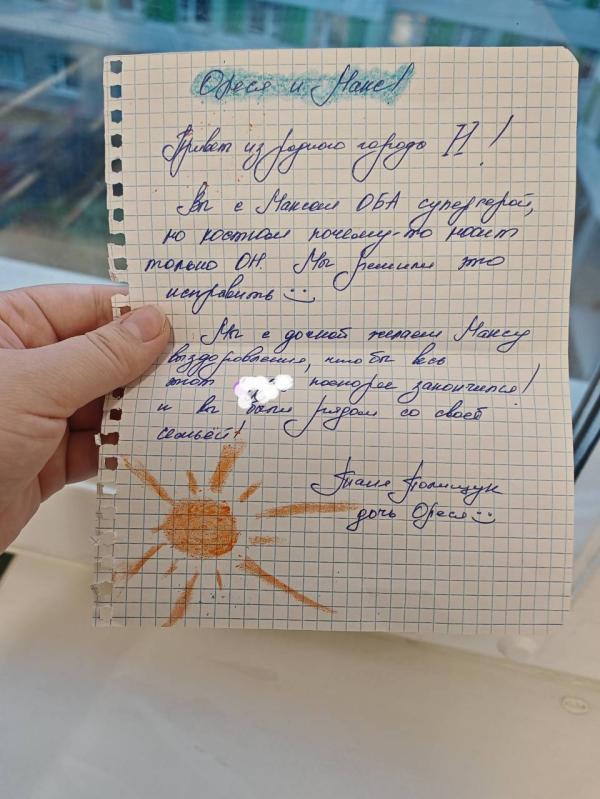 Олеся и Макс!
Привет из родного города Н!
Вы с Максом ОБА супергерои,
но костюм почему-то носит
только ОН. Мы решили это
исправить
Мы с дочкой желаем Максу
выздоровления, что бы весь
этот поскорее закончился!
и вы были рядом со своей
семьёй!
Полищук
дочь Олеся